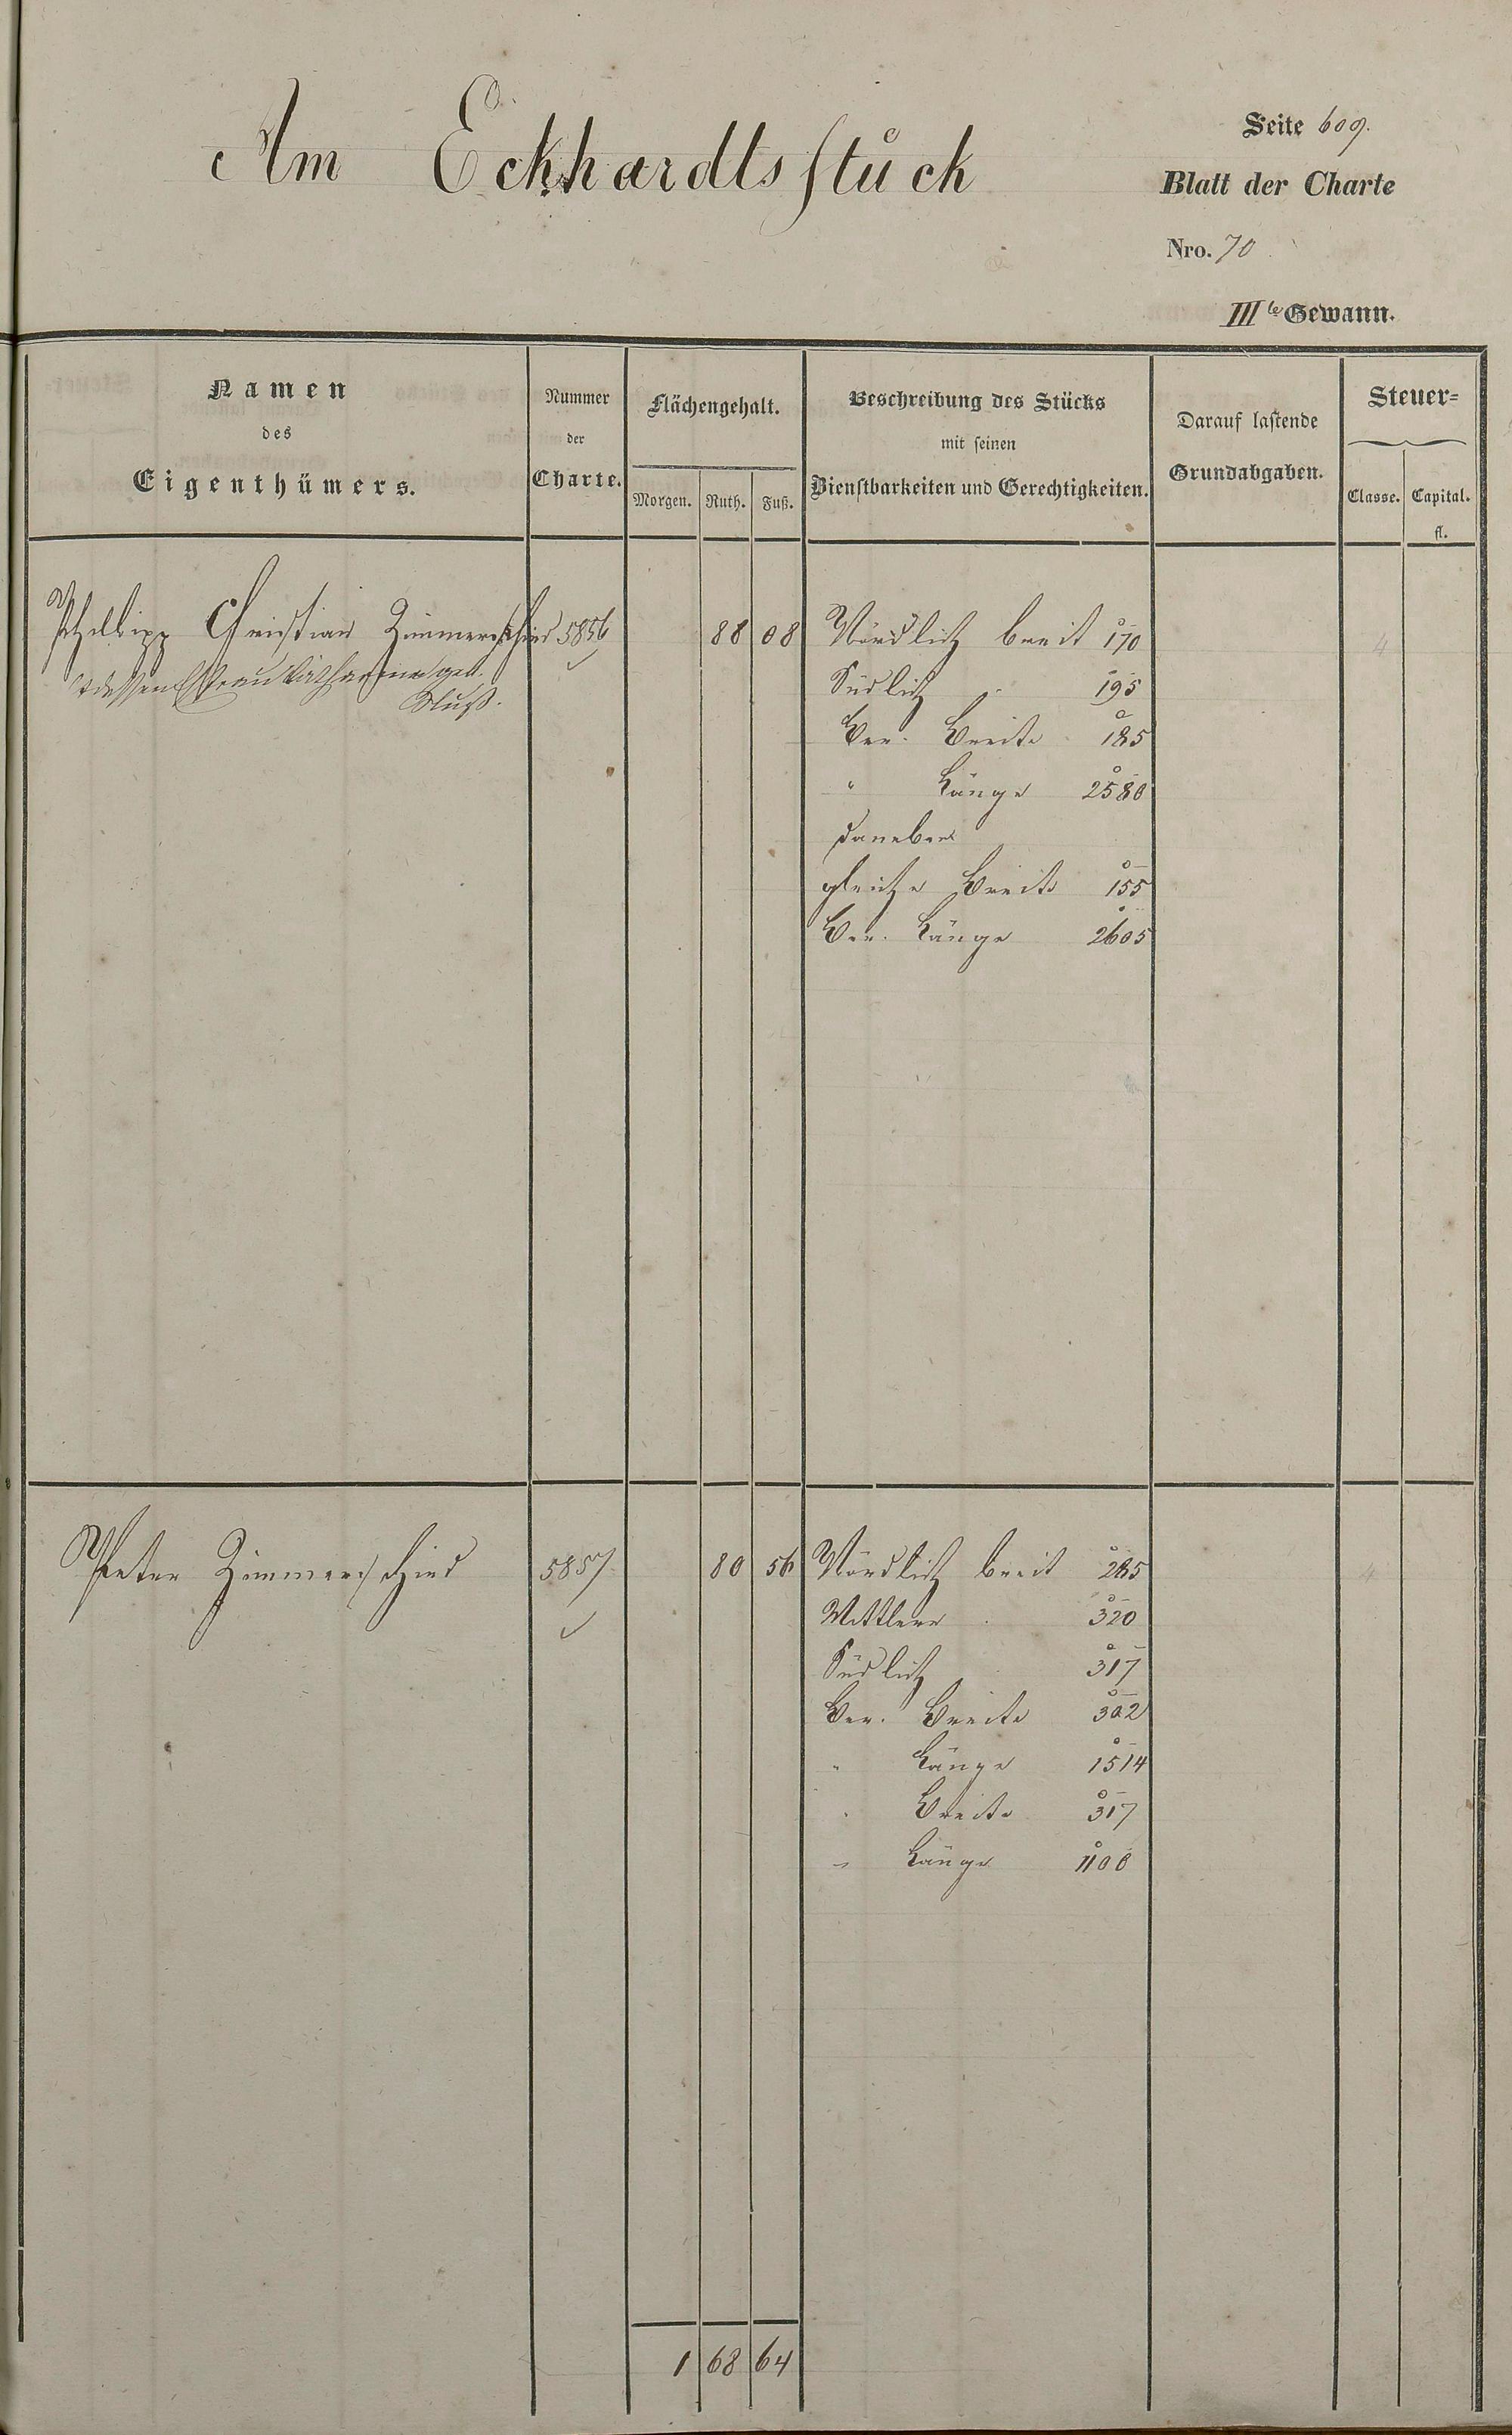 Am Eckhardtsstück
Seite 609.
Blatt der Charte
Nro. 70
IIIte Gewann.
Namen
des
Eigenthümers.
Nummer
der
Charte.
Flächengehalt.
Morgen. Ruth. Fuß.
Beschreibung des Stücks
mit seinen
Dienstbarkeiten und Gerechtigkeiten.
Darauf lastende
Grundabgaben.
Steuer=
Classe. Capital.
fl.
Philipp Christian Zimmerschied 5856 88 08 Nördlich breit 170 4
dessen Ehefrau Katharina geb.
Südlich 195
Ber. Breite 185
" Länge 2580
daneben
gleiche Breite 155
Ber. Länge 2605
Peter Zimmerschied 5857 80 56 Nördlich breit 285 4
Mittlere 320
Südlich 317
Ber. Breite 302
" Länge 1514
" Breite 317
" Länge 1100
1 68 64